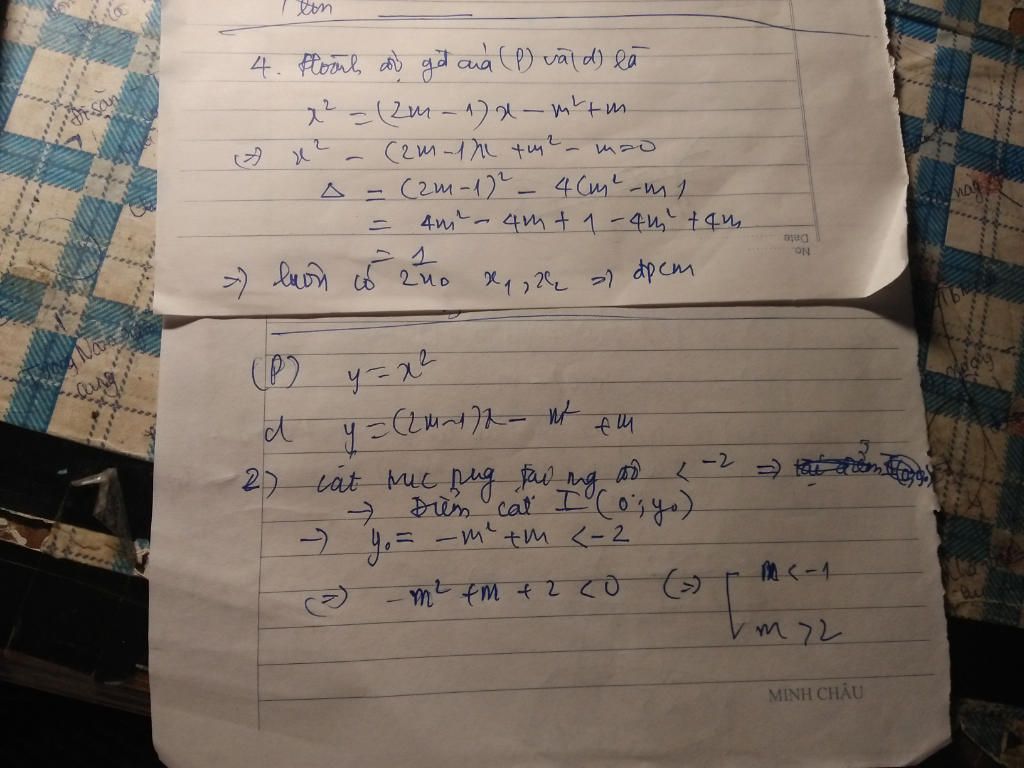 4. Hoành độ gđ của (P) và (d) là
x² = (2m - 1)x - m² + m
(=) x² - (2m-1)x + m² - m = 0
Δ = (2m-1)² - 4(m² - m)
= 4m² - 4m + 1 - 4m² + 4m
= 1
Date
No.
=) luôn có 2 no x₁, x₂ =) đpcm
(P) y = x²
d y = (2m-1)x - m² + m
2) cắt trục tung tại ng độ < -2 =>
→ Điểm cắt I (0; y₀)
→ y₀ = -m² + m < -2
(=) -m² + m + 2 < 0 (=) [ m < -1
m > 2
MINH CHÂU